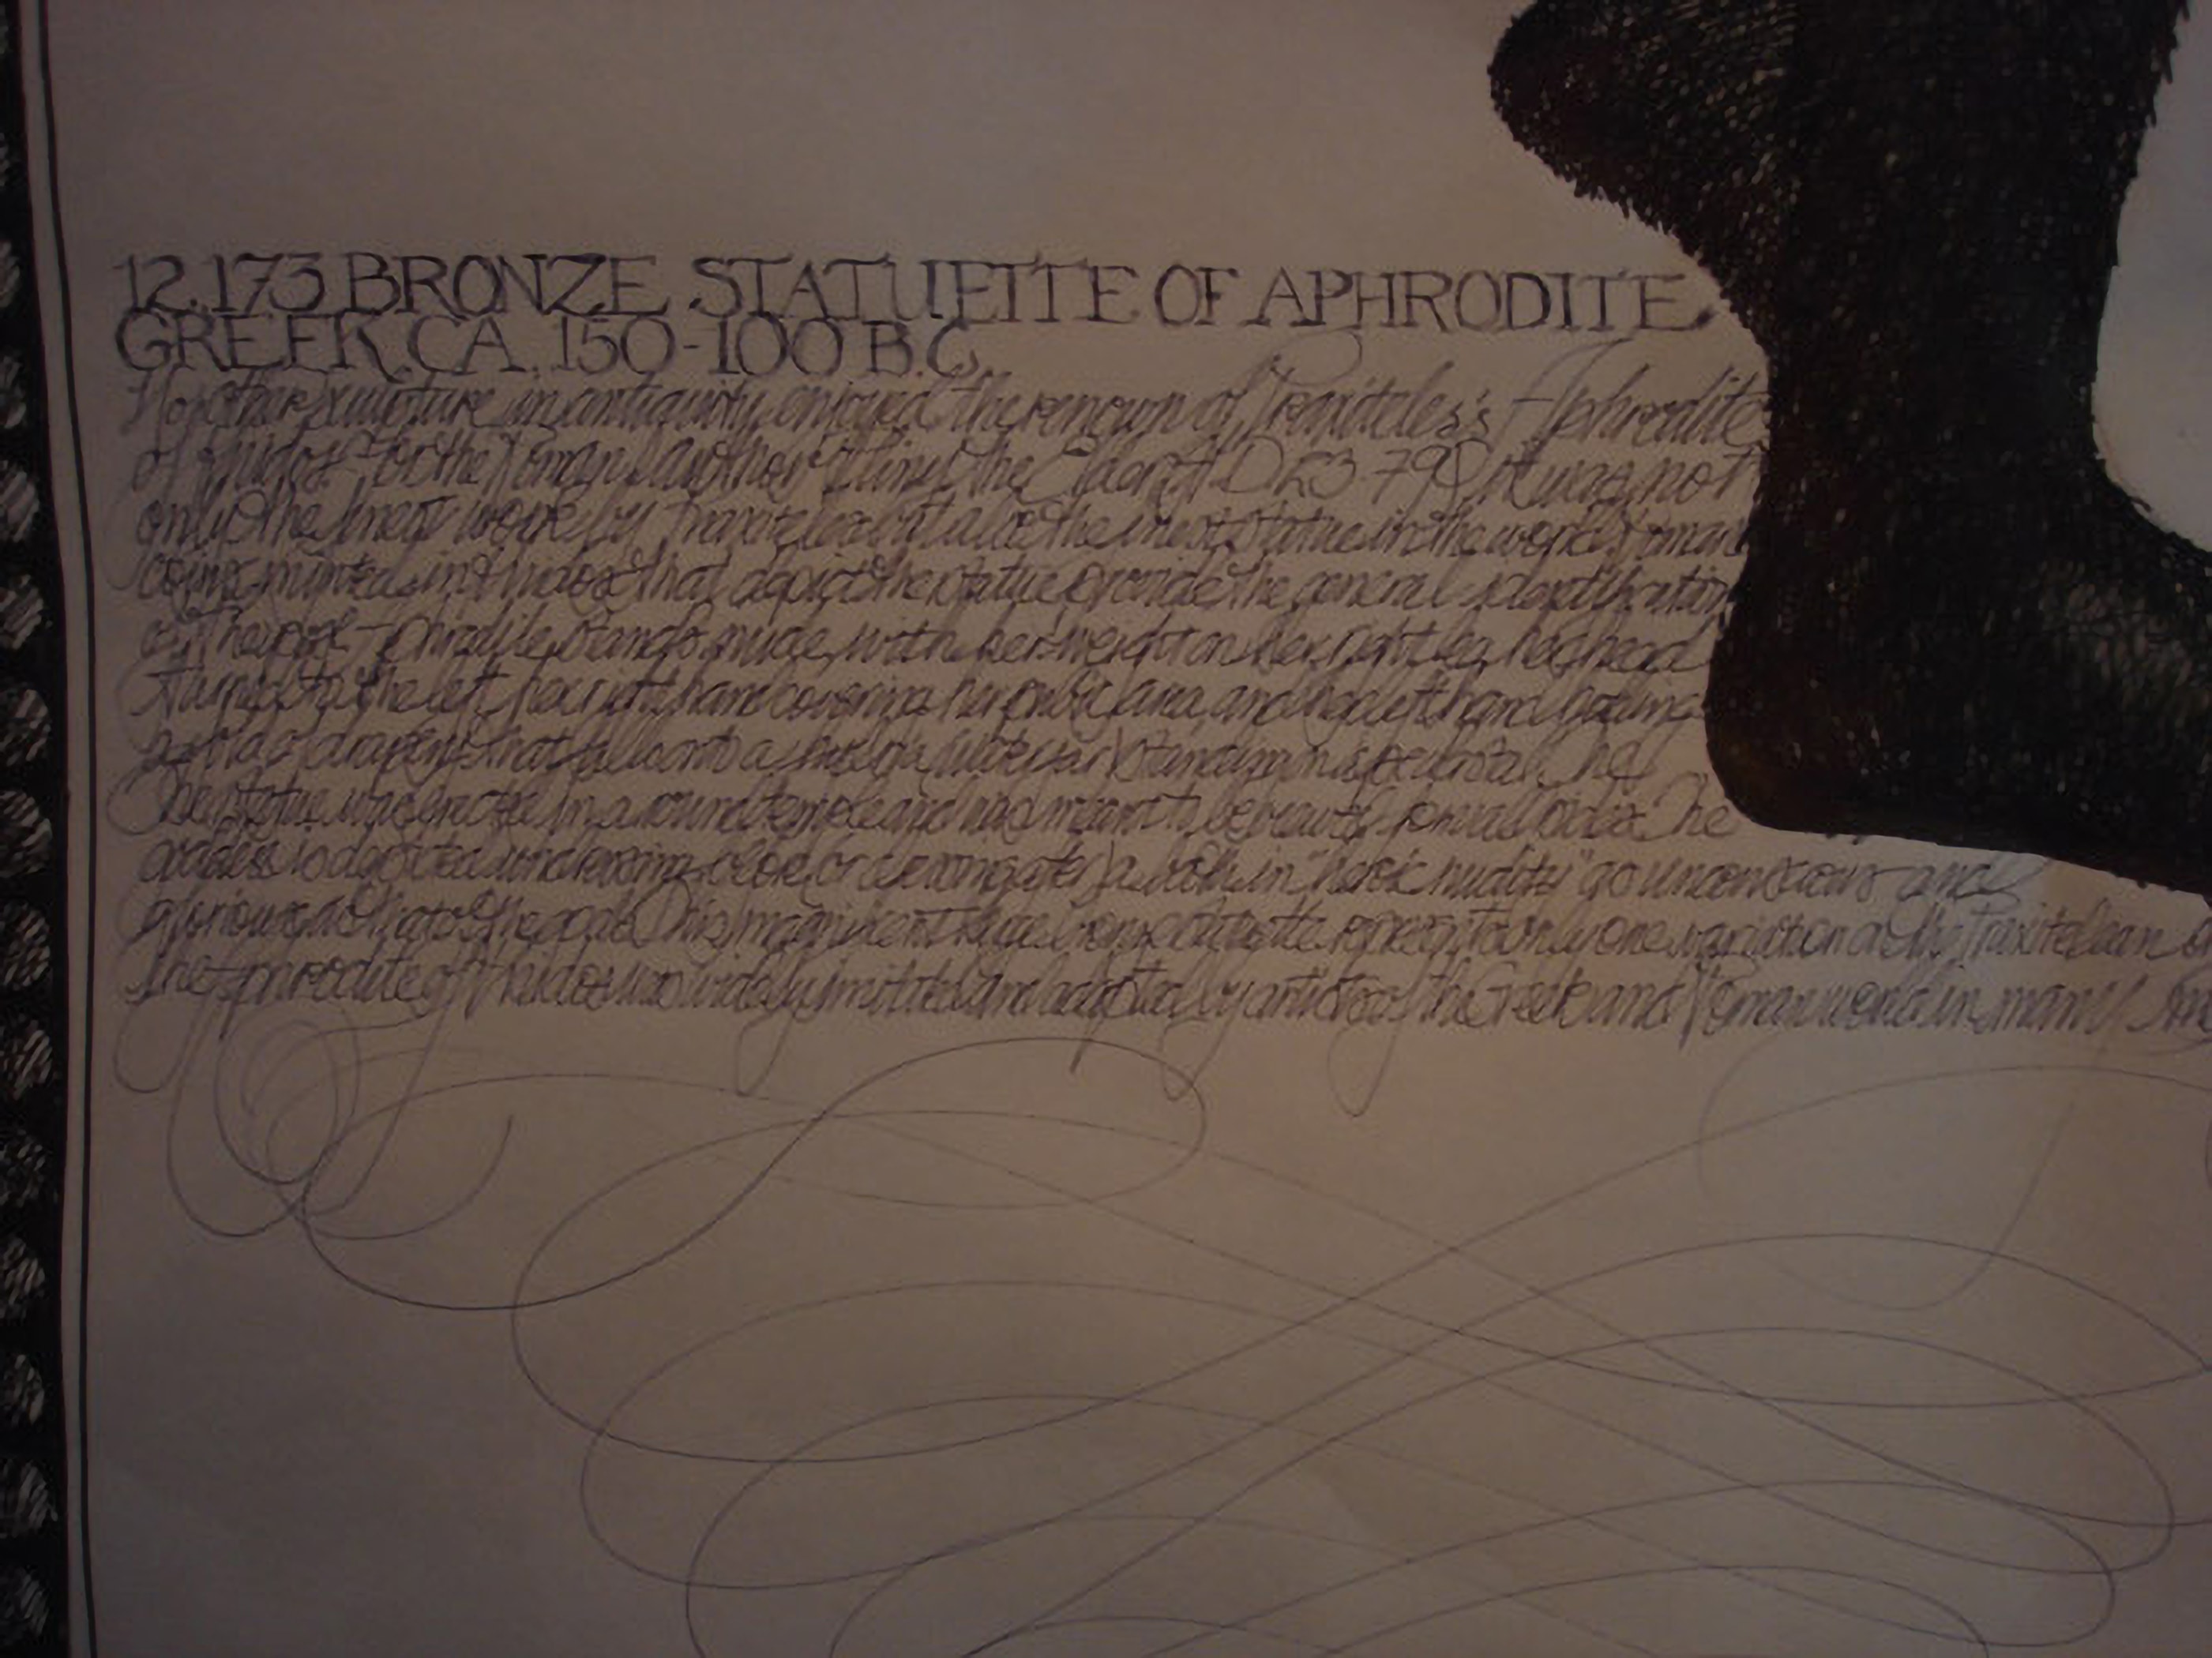 12.173 BRONZE STATUETTE OF APHRODITE
GREEK. CA. 150-100 B.C.
No other sculpture in antiquity enjoyed the renown of Praxiteles's Aphrodite
of Knidos. For the Roman author Pliny the Elder (A.D. 23-79) it was not
only the finest work by Praxiteles but also the finest statue in the world. Roman
coins minted in Knidos that depict the statue provide the general identification
of the pose Aphrodite stands nude, with her weight on her right leg, her head
turned to the left, her right hand covering her pubic area, and her left hand
of drapery that falls onto a water jar standing on a pedestal. The
The statue was erected in a round temple and was meant to be viewed from all sides. The
goddess is depicted undressing before (or after) a bath, in "heroic nudity" so unconscious and
glorious as that of the gods. This magnificent large bronze statuette represents only one variation on the Praxitelean
The Aphrodite of Knidos was widely imitated and adapted by artists of the Greek and Roman world in many